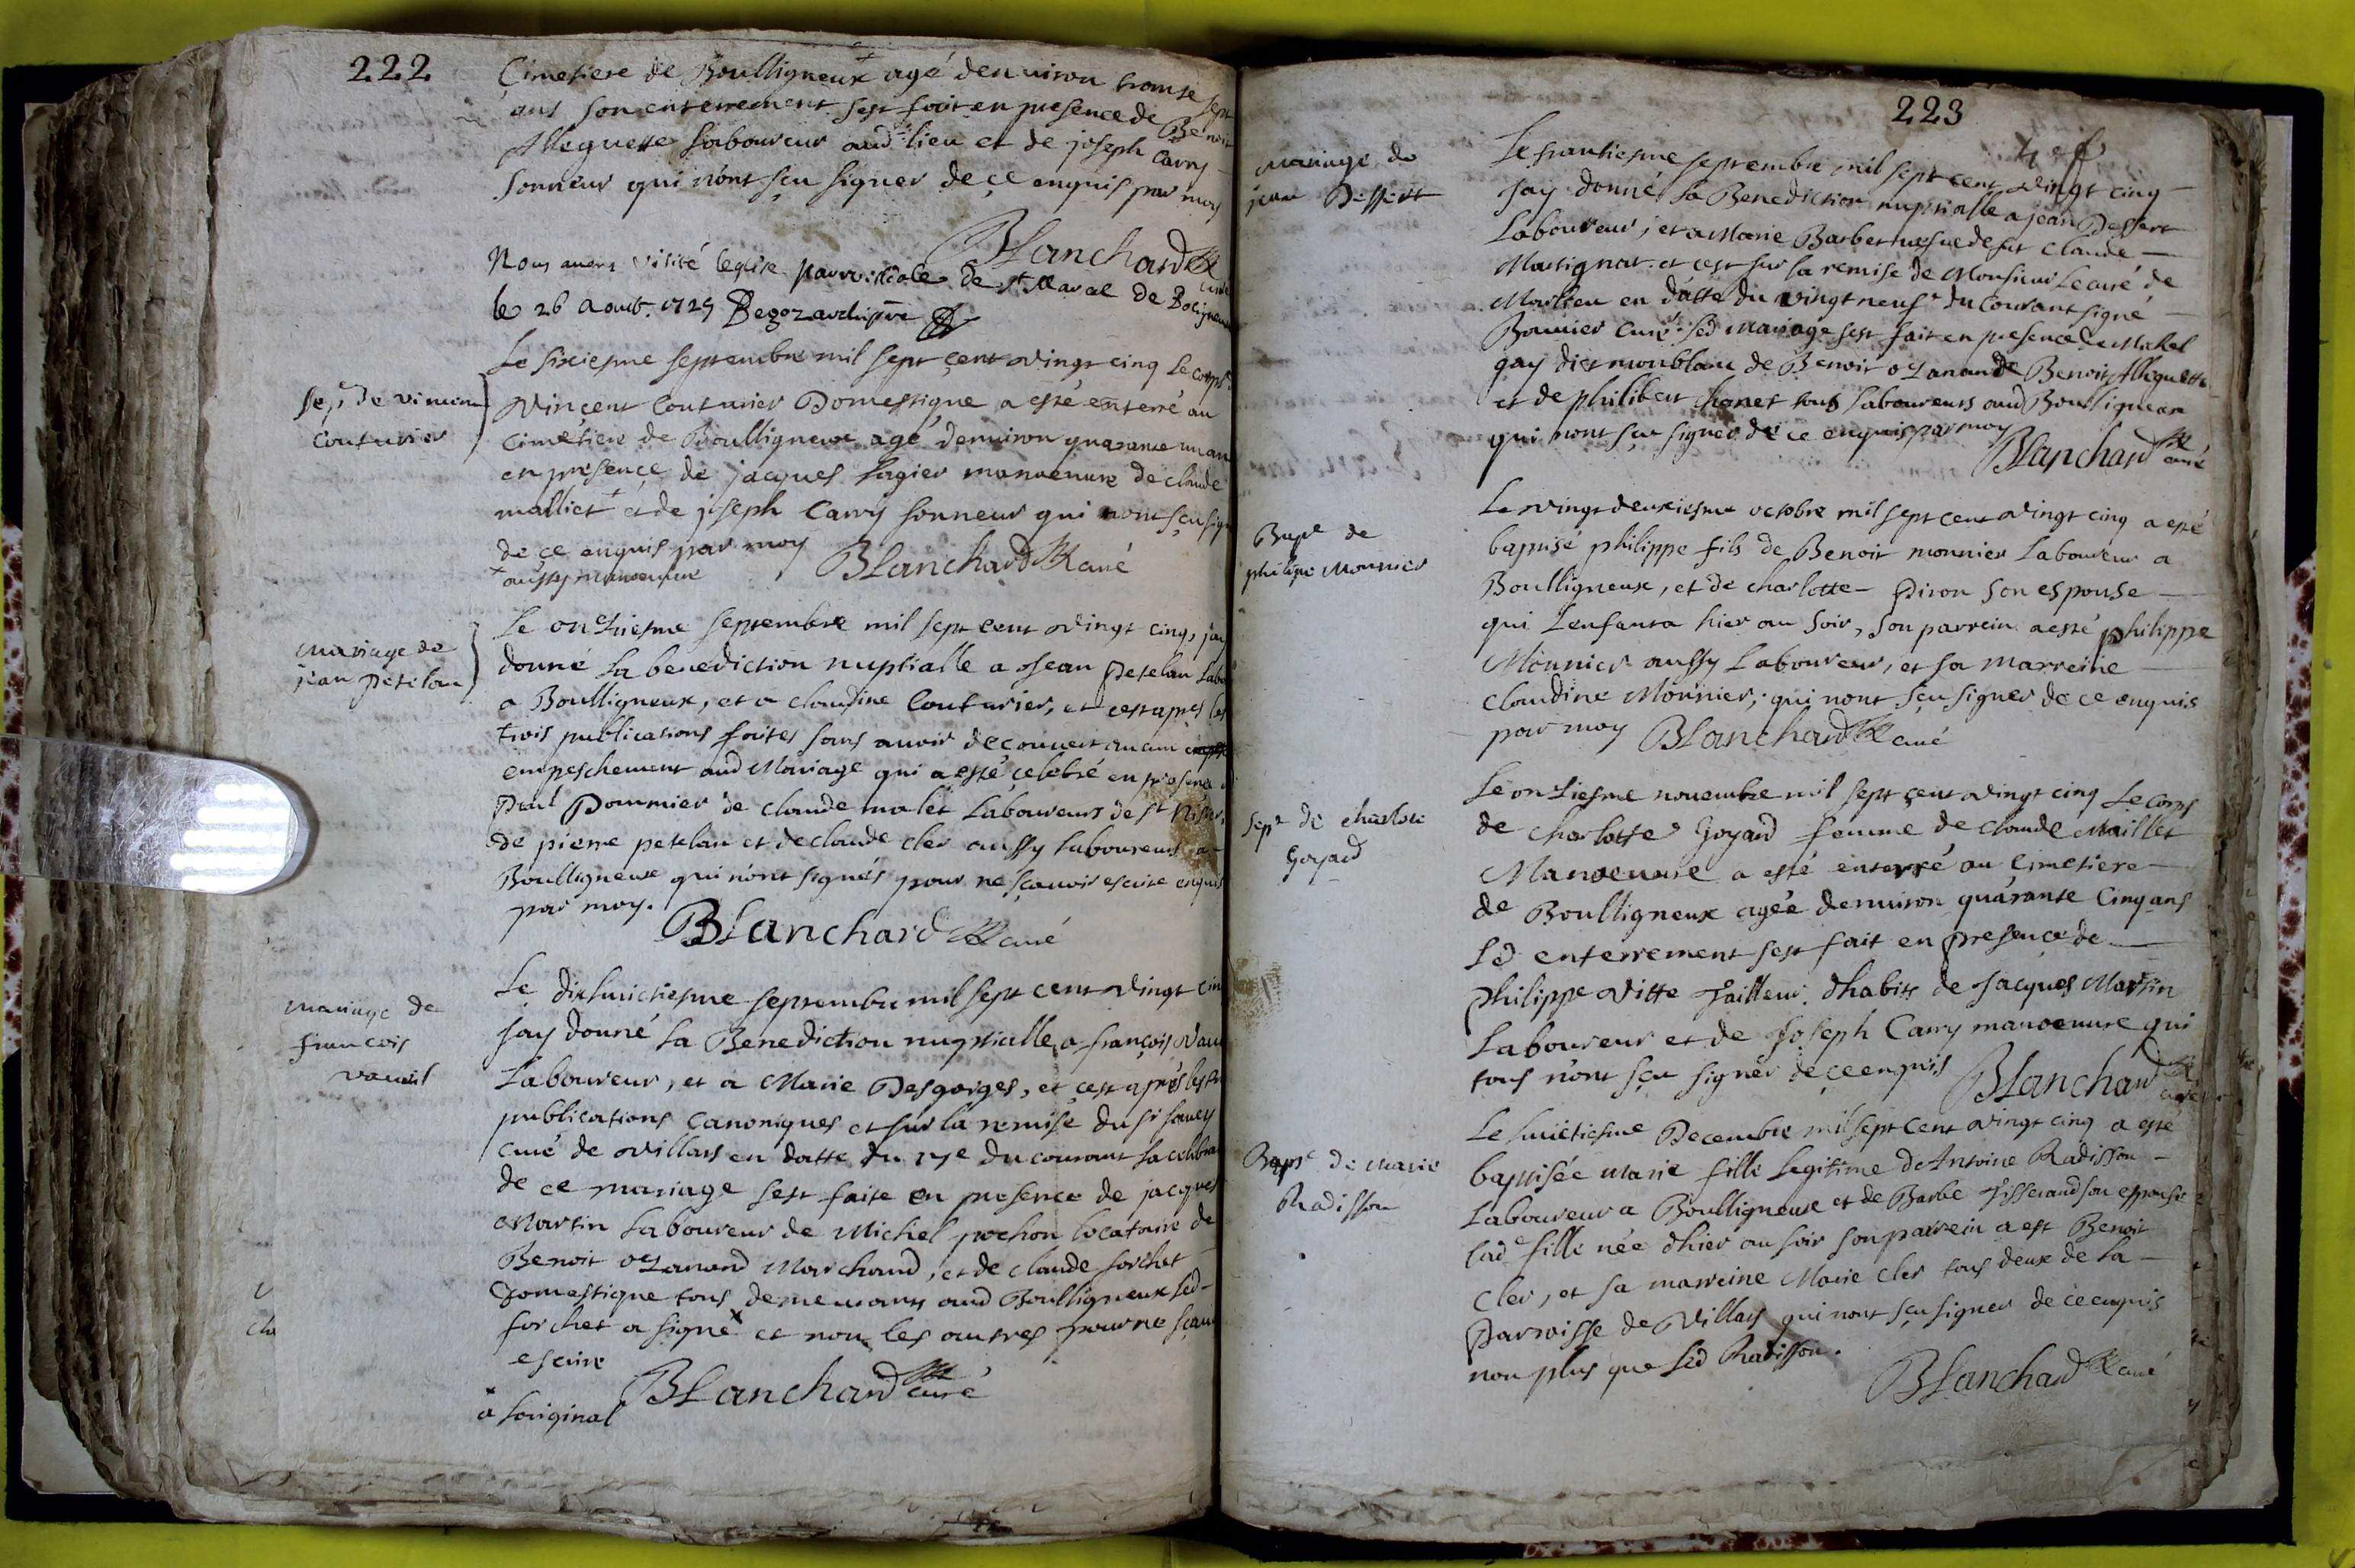 222
Cimetiere de Boulligneux agé denuiron trante sept
ans son enterrement sest fait en presence de Benoit
Alleguette Laboureur aud lieu et de joseph Carry
sonneur qui n'ont sçu signer de ce enquis par moy
Blanchard curé
Nous auons visité leglise parroissiale de st Marcel de Boligneux
le 26 Aoust 1725
sep de vincent
couturier
Le sixiesme septembre mil sept cent vingt cinq le corps
vincent Couturier Domestique a esté enterré au
cimetiere de Boulligneux agé denuiron quarante un an
en presence de jacques Lagier manoeuure de claude
malliet + et de joseph Carry sonneur qui nont sçu sign
de ce enquis par moy Blanchard curé
+ aussy manoeuure
mariage de
jean petelan
Le onziesme septembre mil sept cent vingt cinq, jay
donné la benediction nuptialle a Jean Petelan Labo
a Boulligneux, et a claudine Couturier, et cest apres les
trois publications faites sans auoir decouuert aucun
empeschement aud Mariage qui a esté celebré en presence
Paul Pommier de claude malet Laboureurs de st
de pierre petelan et de claude cler aussy laboureurs a
Boulligneux qui n'ont signés pour ne sçauoir escrire enquis
par moy.
Blanchard curé
mariage de
francois
Le dixhuictiesme septembre mil sept cent vingt cin
Jay donné la Benediction nuptialle a françois
Laboureur, et a Marie Desgorges, et cest aprés les
publications canoniques et sur la remise du sr
curé de villars en datte du 17e du courant la celebra
de ce mariage sest faite en presence de jacques
Martin Laboureur de Michel pochon locataire de
Benoit ozanand Marchand, et de claude forchet
domestique tous demeurants aud Boulligneux led
forchet a signé x et non les autres pour ne sçauoir
escrire
Blanchard curé
x a loriginal
223
mariage de
jean Dessert
Le trantiesme septembre mil sept cent vingt cinq
Jay donné la Benediction nuptialle a jean Dessert
Laboureur, et a Marie Barbet vefue de fut Claude
Martignat. et cest sur la remise de Monsieur Le curé de
Marlieu en datte du vingt neuf du Courant signé
Bouuier curé led Mariage sest fait en presence de Michel
gay dict monblanc de Benoit ozanan de Benoit Alleguette
et de philibert chanet tous laboureurs aud Boulligneux
qui nont sçu signer de ce enquis par moy
Blanchard curé
Bapt de
philipe Monnier
Le vingt deuxiesme octobre mil sept cent vingt cinq a esté
baptisé philippe fils de Benoit monnier Laboureur a
Boulligneux, et de charlotte Piron son espouse
qui Lenfanta hier au soir, son parrein a esté philippe
Monnier aussy Laboureur, et sa marreine
claudine Monnier; qui nont sçu signer de ce enquis
par moy Blanchard curé
sept de charlote
Goyard
Le onziesme nouembre mil sept cent vingt cinq Le Corps
de charlotte Goyard femme de claude Maillet
Manoeuure a esté enterré au Cimetiere
de Boulligneux agée denuiron quarante Cinq ans
Led enterrement sest fait en presence de
philippe vitte Tailleur dhabits de Jacques Martin
Laboureur et de Joseph Carry manoeuure qui
tous n'ont sçu signer de ce enquis Blanchard
curé
Bapt de Marie
Radisson
Le huictiesme Decembre mil sept cent vingt cinq a esté
baptisée Marie fille legitime de Antoine Radisson
Laboureur a Boulligneux et de Barbe Tisserand son espouse
lade fille née dhier au soir son parrein a est Benoit
Cler, et sa marreine Marie cler tous deux de la
Parroisse de Villars qui nont sçu signer de ce enquis
non plus que led Radisson.
Blanchard curé